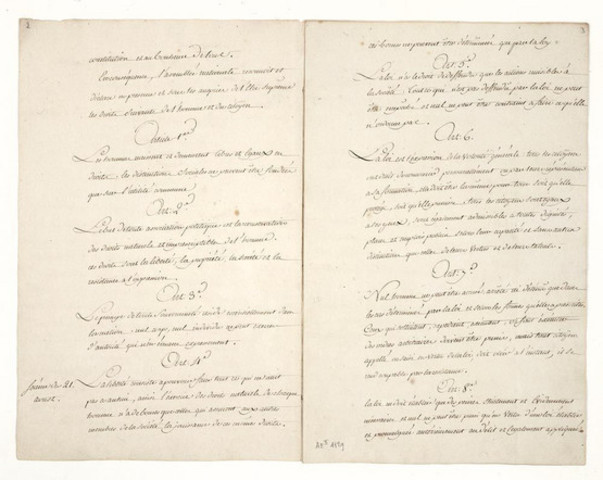 2
constitution et au bonheur de tous.
En conséquence, l'assemblée nationale reconnoit et
déclare en presence et sous les auspices de l'Etre suprême
les droits suivants de l'homme et du citoyen.
Article 1er
Les hommes naissent et demeurent libres et égaux en
droits. les distinctions sociales ne peuvent être fondées
que sur l'utilité commune.
Art. 2e
Le but de toute association politique est la conservation
des droits naturels et imprescriptibles de l'homme.
ces droits sont la liberté, la propriété, la sureté et la
resistance à l'oppression.
Art. 3e
Le principe de toute souveraineté réside essentiellement dans
la nation. nul corps, nul individu ne peut exercer
d'autorité qui n'en émane expressement.
Art. 4e
séance du 21.
aoust.
La liberté consiste à pouvoir faire tout ce qui ne nuit
pas à autrui, ainsi l'exercice des droits naturels de chaque
homme n'a de bornes que celles qui assurent aux autres
membres de la société la jouissance de ces mêmes droits.
3
ces bornes ne peuvent être déterminées que par la loy.
Art. 5e
La loi n'a le droit de deffendre que les actions nuisibles à
la société. Tout ce qui n'est pas deffendu par la loi ne peut
être empêché et nul ne peut être contraint à faire ce qu'elle
n'ordonne pas.
Art. 6.
La loi est l'expression de la volonté générale. tous les citoyens
ont droit de concourir personnellement ou par leurs représentans
à sa formation. elle doit être la même pour tous, soit qu'elle
protège, soit qu'elle punisse. tous les citoyens étant égaux
à ses yeux, sont également admissibles à toutes dignités,
places et emplois publics, selon leur capacité et sans autre
distinction que celles de leurs vertus et de leurs talens.
Art. 7e
Nul homme ne peut être accusé, arrêté ni détenu que dans
les cas déterminés par la loi et selon les formes qu'elle a prescrites.
Ceux qui sollicitent, expédient, exécutent, ou font exécuter
des ordres arbitraires doivent être punis, mais tout citoyen
appellé ou saisi en vertu de la loi, doit obéir à l'instant, il se
rend coupable par la résistance.
Art. 8e
La loi ne doit établir que des peines strictement et évidemment
nécessaires et nul ne peut être puni qu'en vertu d'une loi établie
et promulguée antérieurement au délit et légalement appliquée.